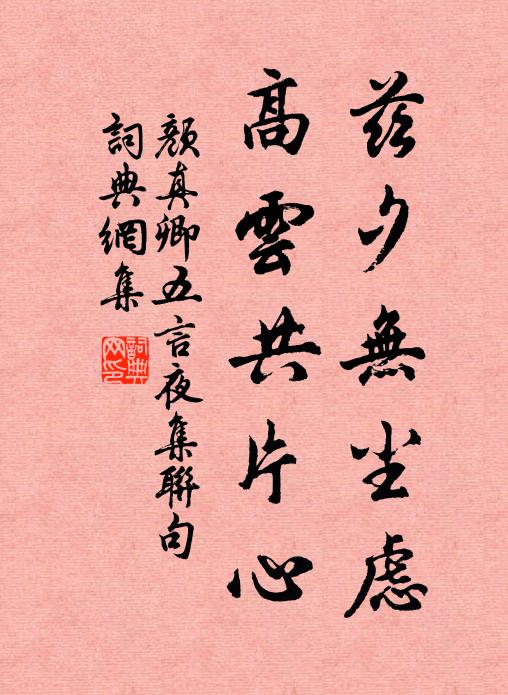 茲夕無尘慮
高雲共片心
顏真卿五言夜集聯句
詞典網集
詞典
网印